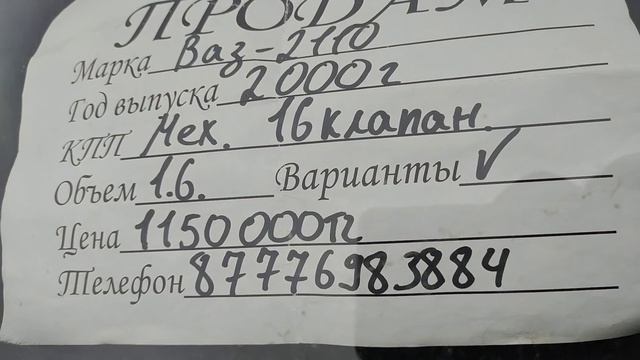 ПРОДАМ
Марка Ваз-2110
Год выпуска 2000г
КПП Мех. 16клапан.
Объем 1.6. Варианты ✓
Цена 1150000тг
Телефон 87776983884